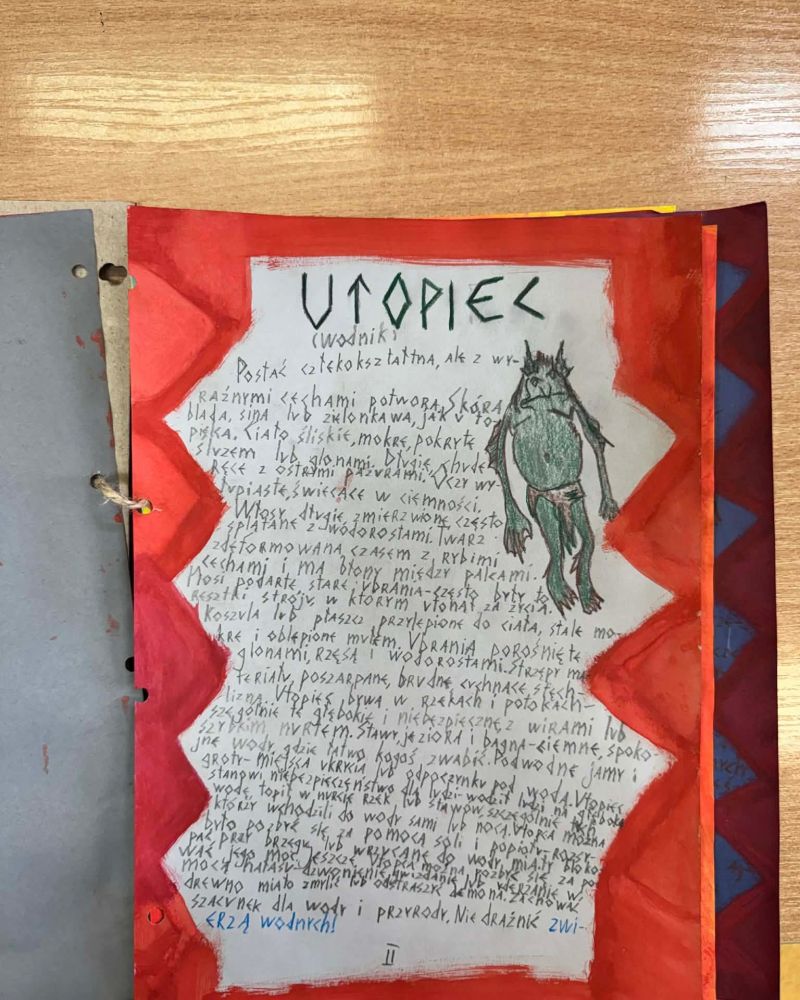 UTOPIEC
(wodnik)
Postać człekokształtna, ale z wy-
raźnymi cechami potwora. Skóra
blada, sina lub zielonkawa, jak u to-
pielca. Ciało śliskie, mokre, pokryte
śluzem lub glonami. Długie, chude
ręce z ostrymi pazurami. Oczy wy-
łupiaste, świecące w ciemności.
Włosy długie zmierzwione, często
splątane z wodorostami. Twarz
zdeformowana, czasem z rybimi
cechami i ma błony między palcami.
Nosi podarte stare ubrania-często były to
resztki stroju, w którym utonął za życia.
Koszula lub płaszcz przylepione do ciała, stale mo-
kre i oblepione mułem. Ubrania porośnięte
glonami, rzęsą i wodorostami. Strzępy ma-
teriału, poszarpane, brudne cuchnące stęch-
lizną. Utopiec bywa w rzekach i potokach-
szególnie te głębokie i niebezpieczne, z wirami lub
szybkim nurtem. Stawy, jeziora i bagna-ciemne, spoko-
jne wody, gdzie łatwo kogoś zwabić. Podwodne jamy i
groty- miejsca ukrycia lub odpoczynku pod wodą. Utopiec
stanowi niebezpieczeństwo dla ludzi- wodził ludzi na głęboką
wodę, topił w nurcie rzek lub stawów, szczególnie tych
którzy wchodzili do wody sami lub nocą. Utopca można
było pozbyć się za pomocą soli i popiołu- rozsy-
pać przy brzegu lub wrzucane do wody, miały bloko-
wać jego moc. Jeszcze Utopca można pozbyć się za po-
mocą hałasu- dzwonienie, gwizdanie lub uderzanie w
drewno miało zmylić lub odstraszyć demona. Zachować
szacunek dla wody i przyrody. Nie drażnić zwi-
ERZĄ wodnych!
II